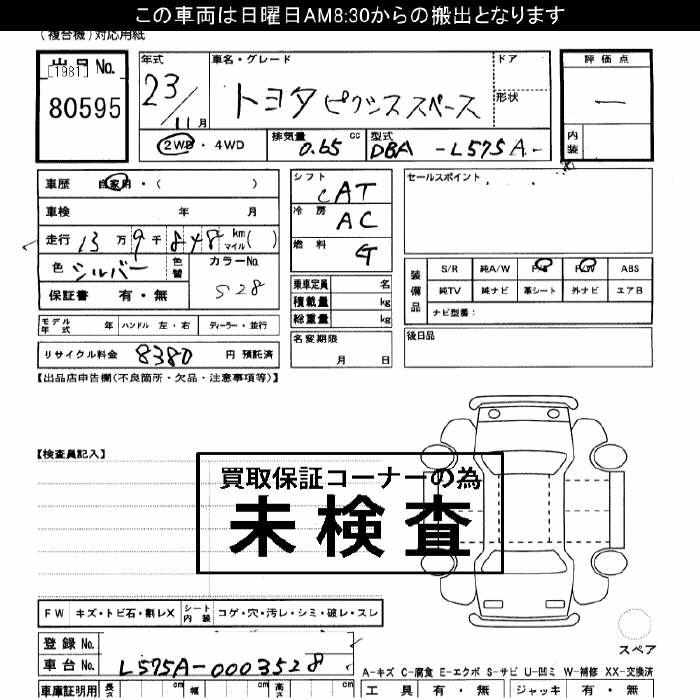 この車両は日曜日AM8:30からの搬出となります
(複合機)対応用紙
出品 No. [1981]
80595
年式 23/11月
車名・グレード トヨタ ピクシススペース
ドア
形状
評価点 一
内装
2WD・4WD
排気量 0.65 cc
型式 DBA-L575A-
車歴 自家用・( )
車検 年 月
走行 13万9千848 km マイル ( )
色 シルバー 色替 カラーNo. S28
保証書 有・無
シフト CAT
冷房 AC
燃料 G
乗車定員 名
積載量 kg
総重量 kg
セールスポイント
装備品
S/R 純A/W P/S P/W ABS
純TV 純ナビ 革シート 外ナビ エアB
ナビ型番:
モデル年式 年 ハンドル 左・右 ディーラー・並行
名変期限 月 日
後日品
リサイクル料金 8380 円 預託済
【出品店申告欄(不良箇所・欠品・注意事項等)】
【検査員記入】
買取保証コーナーの為
未検査
FW キズ・トビ石・割レX シート内装 コゲ・穴・汚レ・シミ・破レ・スレ
登録 No.
車台 No. L575A-0003528
スペア
A-キズ C-腐食 E-エクボ S-サビ U-凹ミ W-補修 XX-交換済
車庫証明用 長さ cm 幅 cm 高さ cm
工具 有・無 ジャッキ 有・無